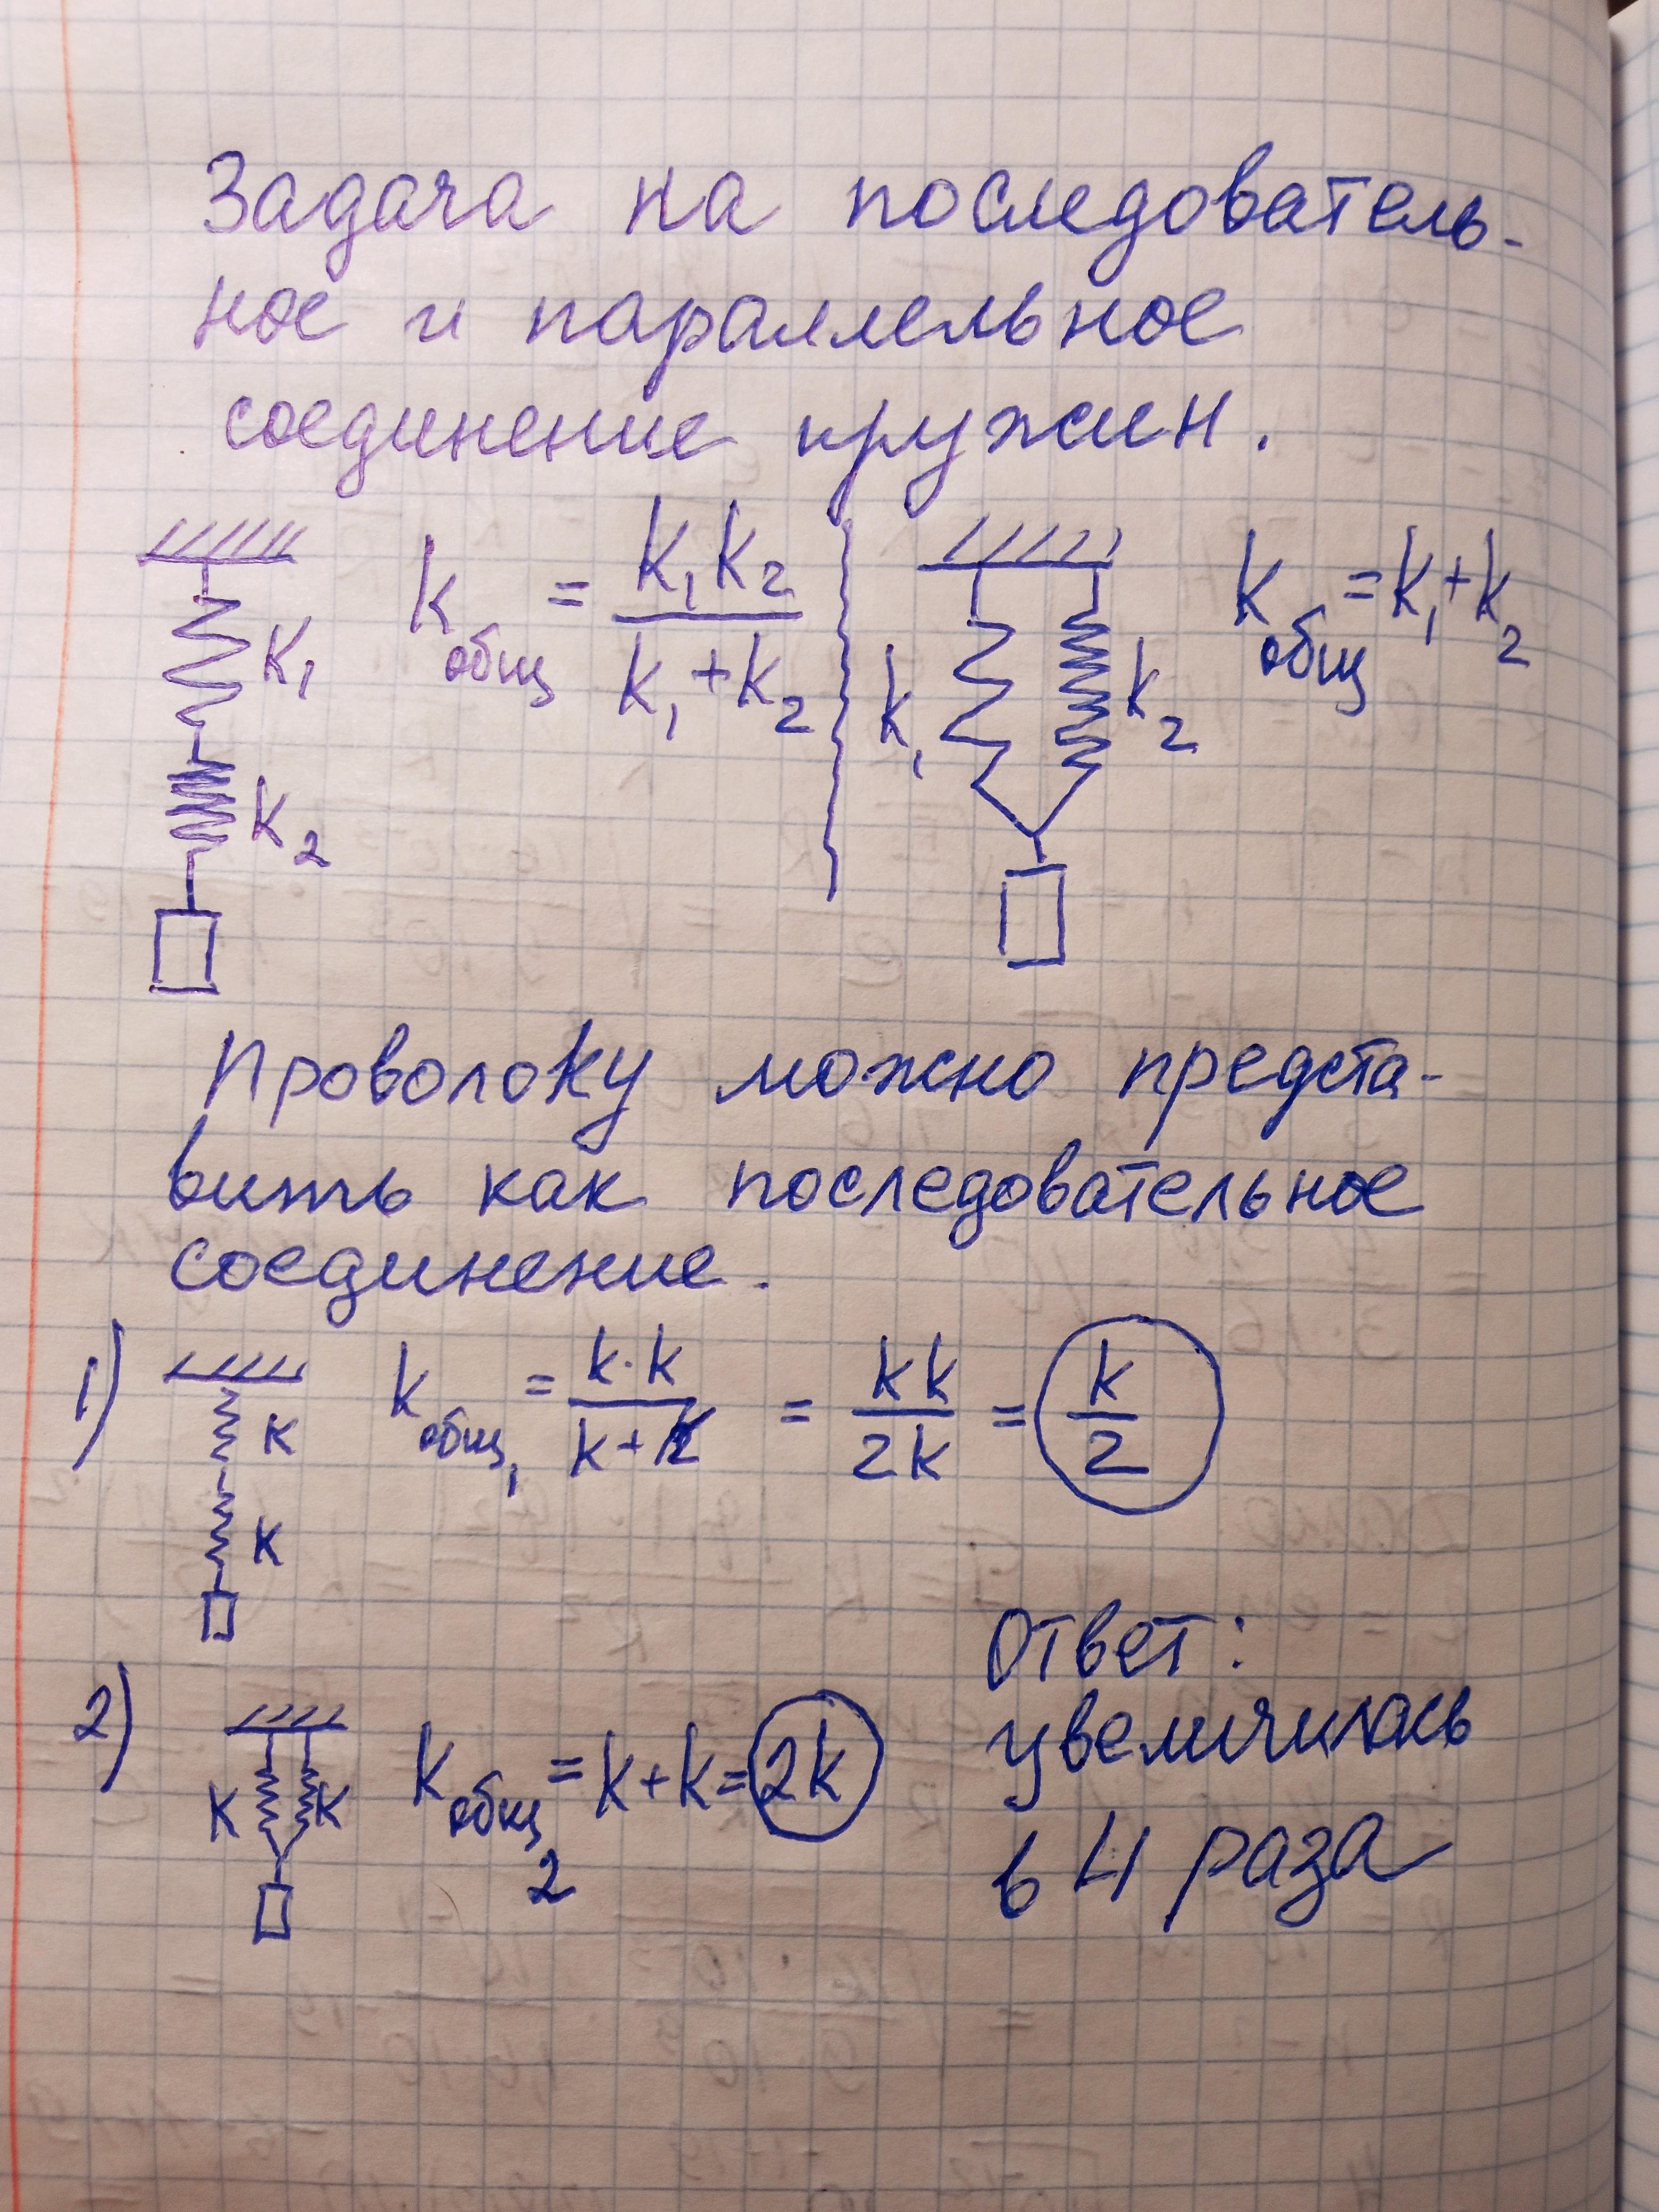 Задача на последователь-
ное и параллельное
соединение пружин.
K₁ K₂ k общ = k₁k₂ / k₁+k₂
k₁ k₂ k общ = k₁+k₂
Проволоку можно предста-
вить как последовательное
соединение.
1) к к k общ₁ = k·k / k+k = kk / 2k = k / 2
2) к к k общ₂ = k+k = 2k
Ответ:
увеличилась
в 4 раза